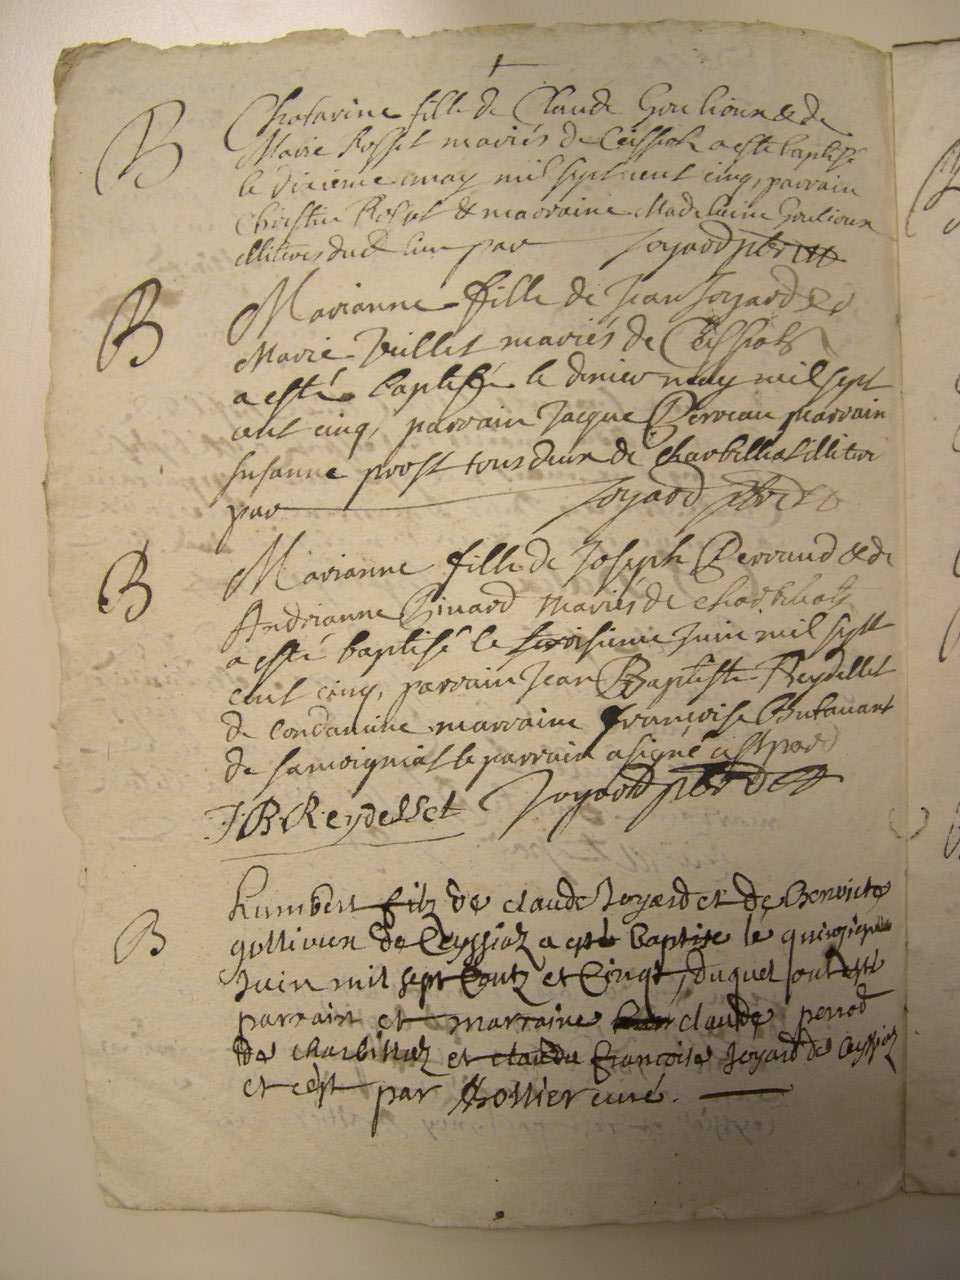 B
Chatarine fille de Claude Goulioux & de
Marie Rosset mariés de Ceissiat a esté baptisé
le dixieme may mil sept cent cinq, parrain
Christin Rosset & marraine Madelaine Goulioux
par Joyard pbre
B
Marianne fille de Jean Joyard & de
Marie Vuillet mariés de Ceissiat
a esté baptisé le dernier may mil sept
cent cinq, parrain Jacque Perreau marrain
Susanne prost tous deux de charbilliat
par Joyard pbre
B
Marianne fille de Joseph Perraud & de
Andrianne Pinard mariés de charbilliat
a esté baptisé le troisieme Juin mil sept
cent cinq, parrain Jean Baptiste Reydellet
de condamine marraine françoise Butavant
de samoigniat le parrain a signé
J B Reydellet Joyard pbre
B
humbert filz de claude Joyard et de Benoicte
gollivux de Ceyssiaz a esté Baptise le quinzieme
Juin mil sept Centz et Cinqt, duquel ont esté
parrain et marraine claude perrod
de charbilliaz et francoise Joyard de Ceyssiaz
et c'est par Bollier curé.